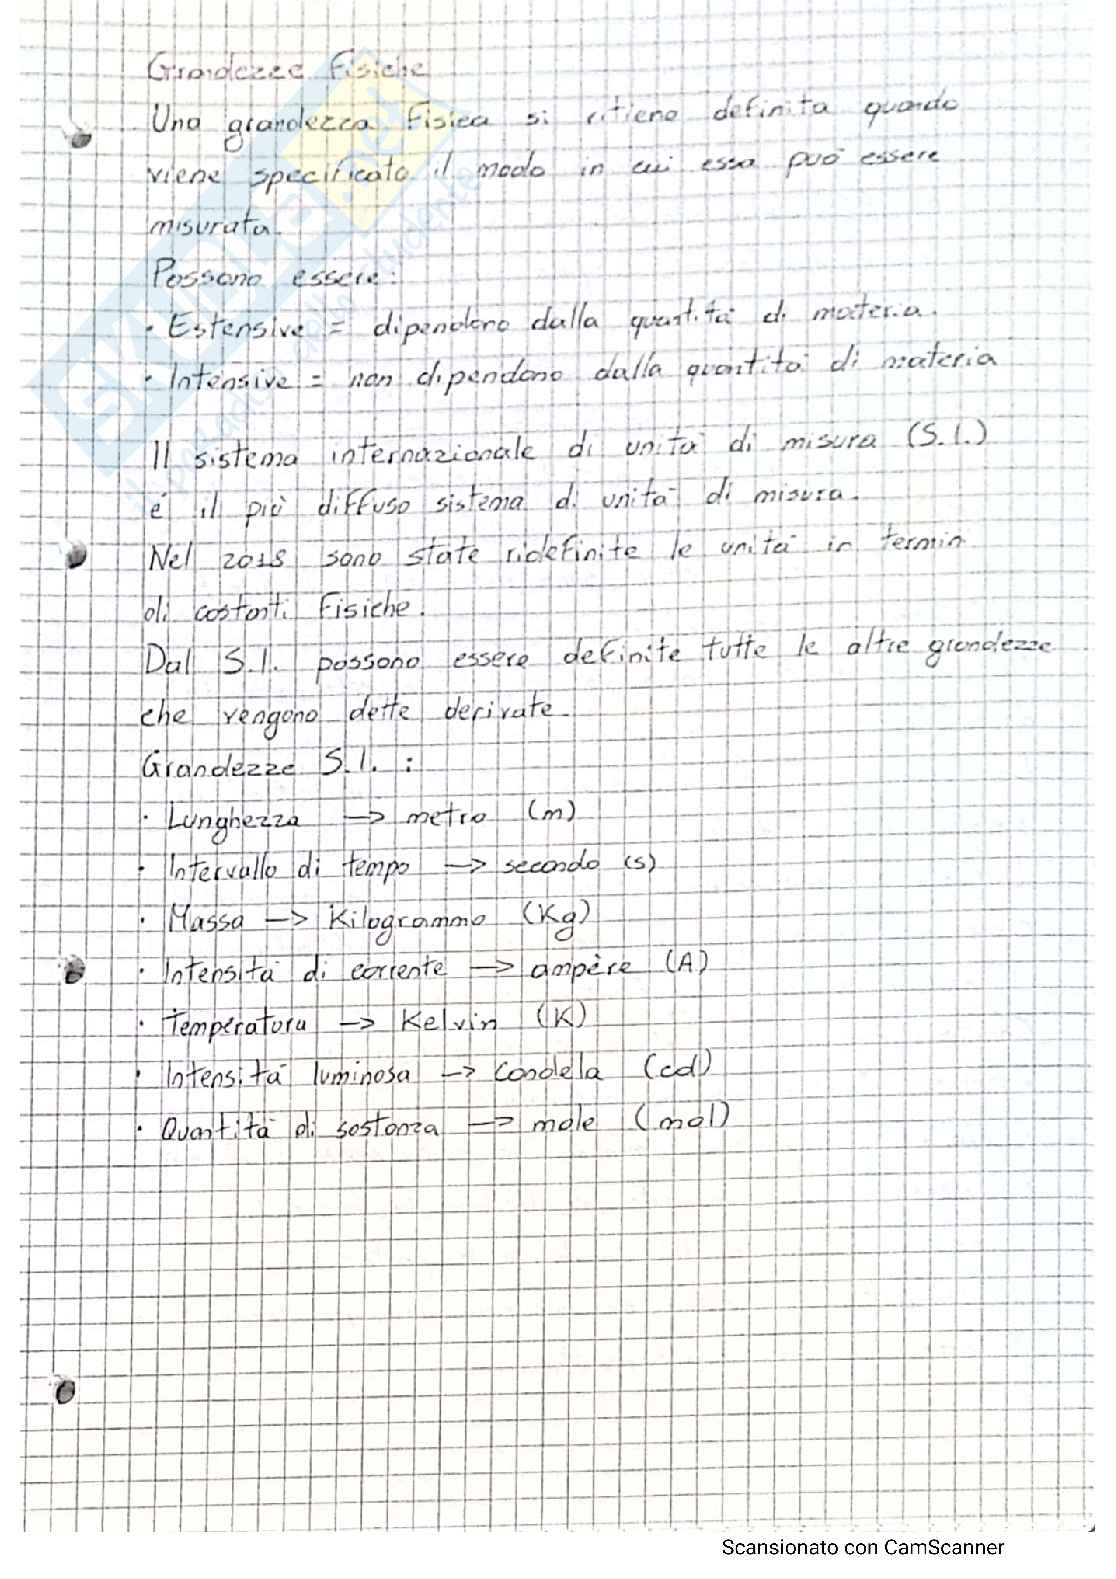 Grandezze Fisiche
Una grandezza Fisica si ritiene definita quando
viene specificato il modo in cui essa può essere
misurata.
Possono essere:
· Estensive = dipendono dalla quantità di materia.
· Intensive = non dipendono dalla quantità di materia
Il sistema internazionale di unità di misura (S.I.)
é il più diffuso sistema di unità di misura.
Nel 2018 sono state ridefinite le unità in termin
di costanti Fisiche.
Dal S.I. possono essere definite tutte le altre grandezze
che vengono dette derivate.
Grandezze S.I. :
· Lunghezza –> metro (m)
· Intervallo di tempo –> secondo (s)
· Massa –> Kilogrammo (Kg)
· Intensità di corrente –> ampère (A)
· Temperatura –> Kelvin (K)
· Intensità luminosa –> Candela (cd)
· Quantità di sostanza –> mole (mol)
Scansionato con CamScanner